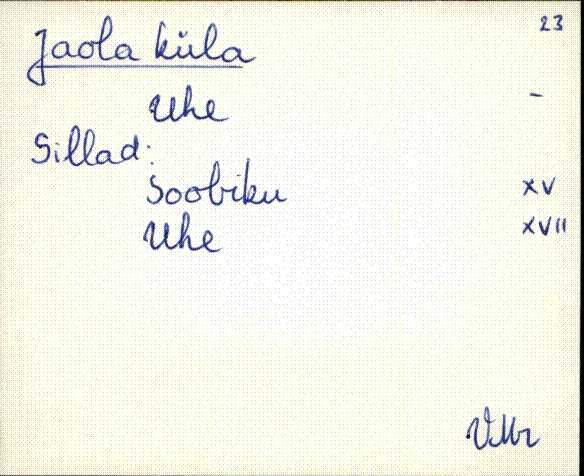 23
Jaola küla
Uhe -
Sillad:
Soobiku XV
Uhe XVII
VMr